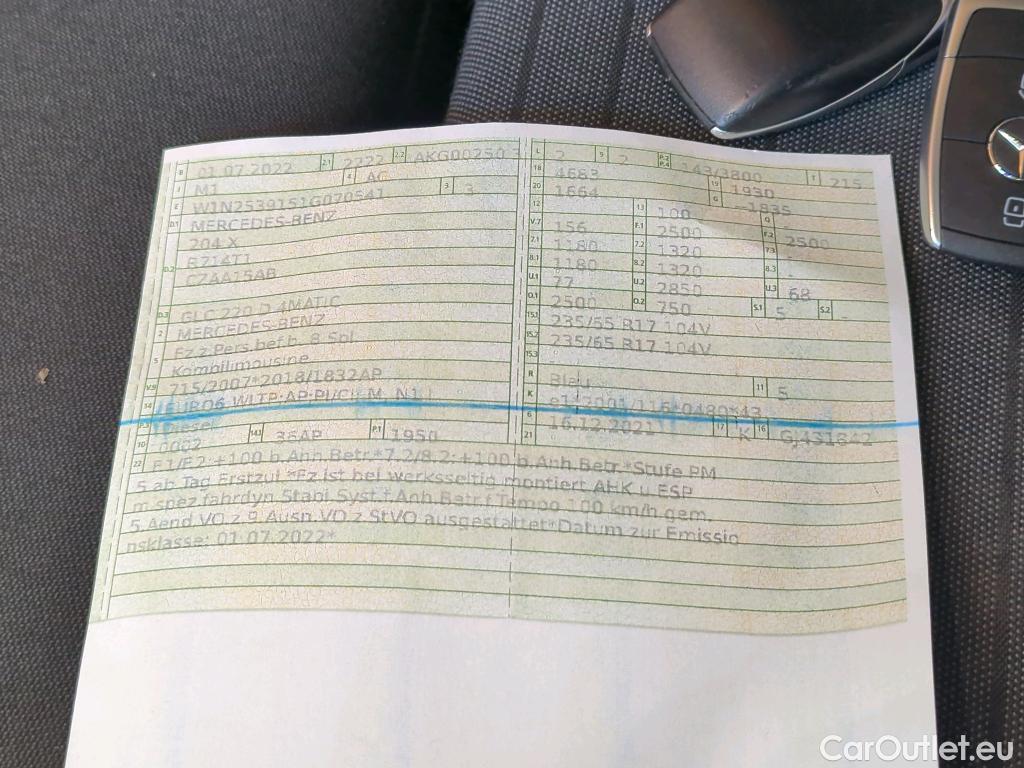 B 01.07.2022 2.1 2222 2.2 AKG00250 7
J M1 4 AC
E W1N2539151G070541 3 3
D.1 MERCEDES-BENZ
204 X
D.2 R714T1
CZAA15AB
D.3 GLC 220 D 4MATIC
2 MERCEDES-BENZ
5 Fz.z.Pers.bef.b. 8 Spl.
Kombilimousine
V.9 715/2007*2018/1832AP
14 EURO6 WLTP;AP;PI/CI; M, N1 I
P.3 Diesel
10 0002 14.1 36AP P.1 1950
L 2 9 2 P.2 P.4 143/3800 T 215
18 4683 19 1930
20 1664 G 1835
12 - 13 100 Q -
V.7 156 F.1 2500 F.2 2500
7.1 1180 7.2 1320 7.3 -
8.1 1180 8.2 1320 8.3 -
U.1 77 U.2 2850 U.3 68
O.1 2500 O.2 750 S.1 5 S.2 -
15.1 235/65 R17 104V
15.2 235/65 R17 104V
15.3 -
R Blau 11 5
K e1*2001/116*0480*43
6 16.12.2021 17 K 16 GJ431842
21
22 F.1/F.2:+100 b.Anh.Betr.*7.2/8.2:+100 b.Anh.Betr.*Stufe PM
5 ab Tag Erstzul.*Fz.ist bei werksseitig montiert AHK u.ESP
m.spez.fahrdyn.Stabi.Syst.f.Anh.Betr.f.Tempo 100 km/h gem.
5.Aend.VO z.9.Ausn.VO z.StVO ausgestattet*Datum zur Emissio
nsklasse: 01.07.2022*
CarOutlet.eu